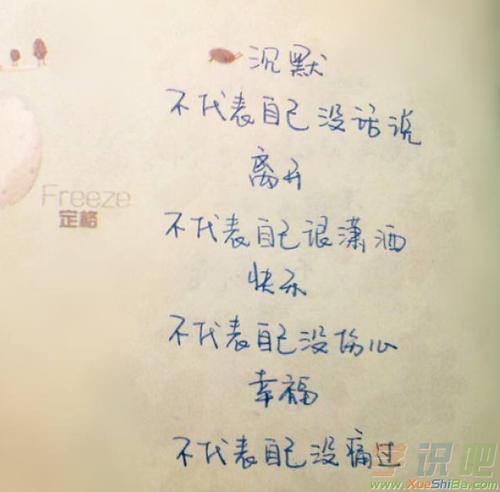 沉默
不代表自己没话说
离开
Freeze
定格
不代表自己很潇洒
快乐
不代表自己没伤心
幸福
不代表自己没痛过
学识吧
www.XueShiBa.com